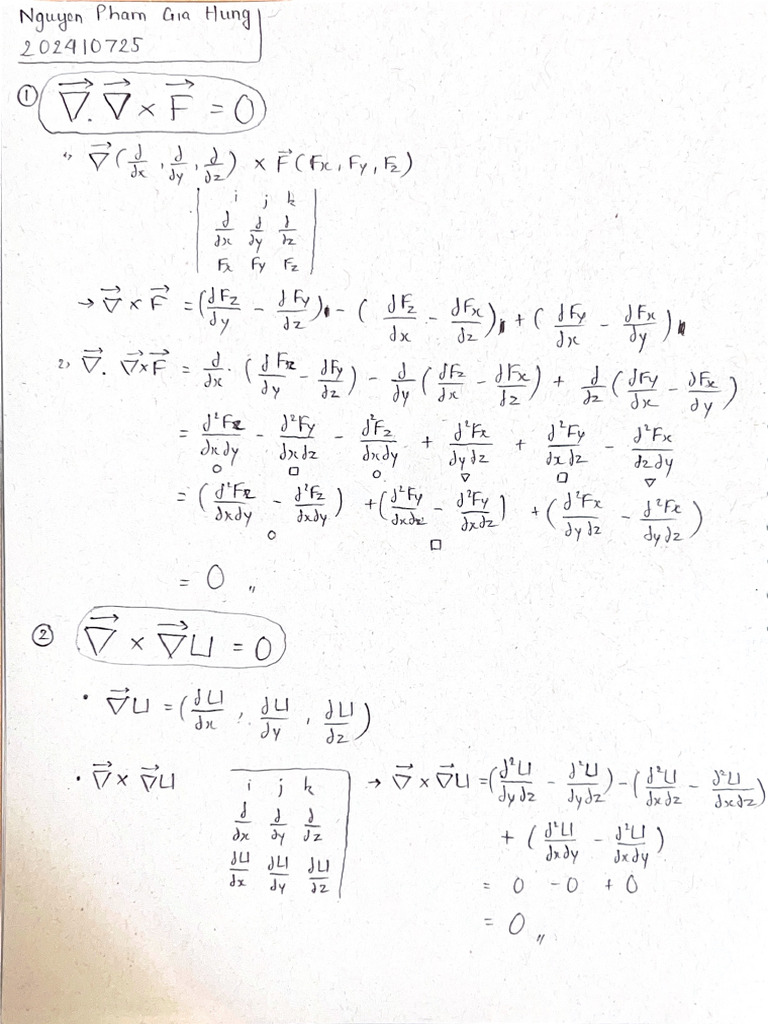 Nguyen Pham Gia Hung
202410725
① ∇⃗.∇⃗ × F⃗ = 0
1) ∇⃗ (∂/∂x, ∂/∂y, ∂/∂z) × F⃗ (Fx, Fy, Fz)
| i j k |
| ∂/∂x ∂/∂y ∂/∂z |
| Fx Fy Fz |
→ ∇⃗ × F⃗ = (∂Fz/∂y - ∂Fy/∂z) - (∂Fz/∂x - ∂Fx/∂z) + (∂Fy/∂x - ∂Fx/∂y)
2) ∇⃗. ∇⃗×F⃗ = ∂/∂x · (∂Fz/∂y - ∂Fy/∂z) - ∂/∂y (∂Fz/∂x - ∂Fx/∂z) + ∂/∂z (∂Fy/∂x - ∂Fx/∂y)
= ∂²Fz/∂x∂y - ∂²Fy/∂x∂z - ∂²Fz/∂x∂y + ∂²Fx/∂y∂z + ∂²Fy/∂x∂z - ∂²Fx/∂z∂y
= (∂²Fz/∂x∂y - ∂²Fz/∂x∂y) + (∂²Fy/∂x∂z - ∂²Fy/∂x∂z) + (∂²Fx/∂y∂z - ∂²Fx/∂y∂z)
= 0 〃
② ∇⃗ × ∇⃗U = 0
• ∇⃗U = (∂U/∂x, ∂U/∂y, ∂U/∂z)
• ∇⃗ × ∇⃗U
| i j k |
| ∂/∂x ∂/∂y ∂/∂z |
| ∂U/∂x ∂U/∂y ∂U/∂z |
→ ∇⃗ × ∇⃗U = (∂²U/∂y∂z - ∂²U/∂y∂z) - (∂²U/∂x∂z - ∂²U/∂x∂z)
+ (∂²U/∂x∂y - ∂²U/∂x∂y)
= 0 - 0 + 0
= 0 〃